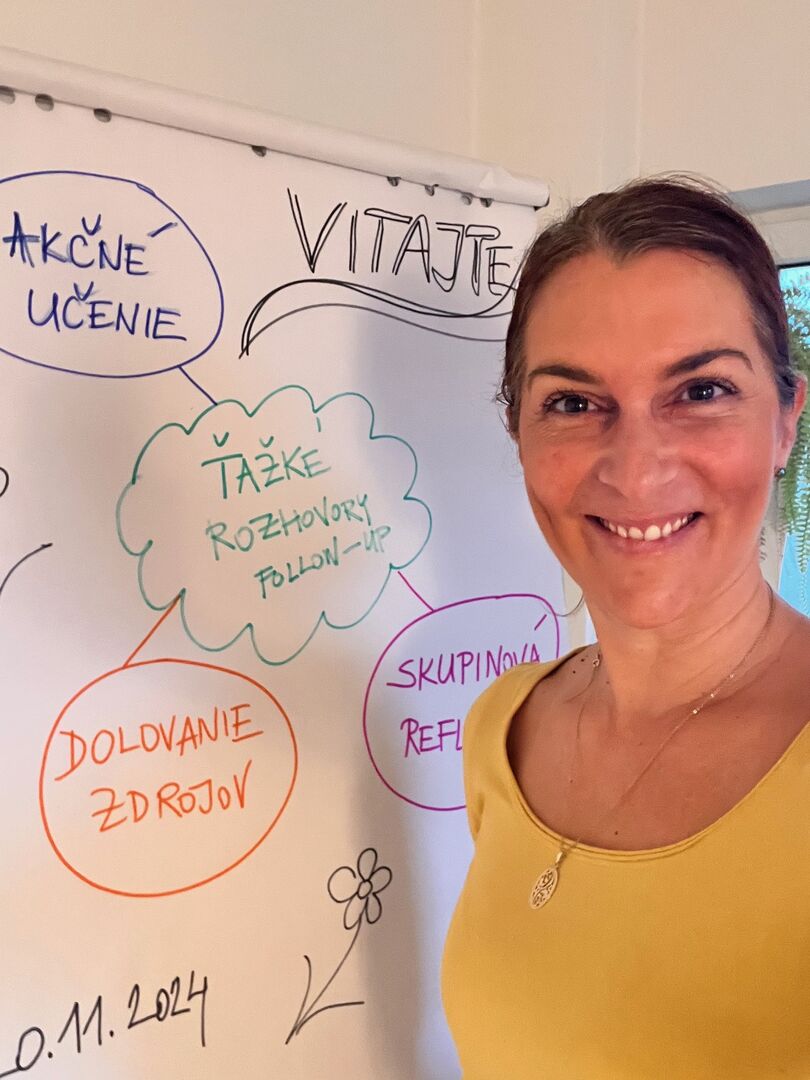 VITAJTE
AKČNÉ
UČENIE
ŤAŽKÉ
ROZHOVORY
FOLLOW-UP
SKUPINOVÁ
REFL
DOLOVANIE
ZDROJOV
0.11.2024